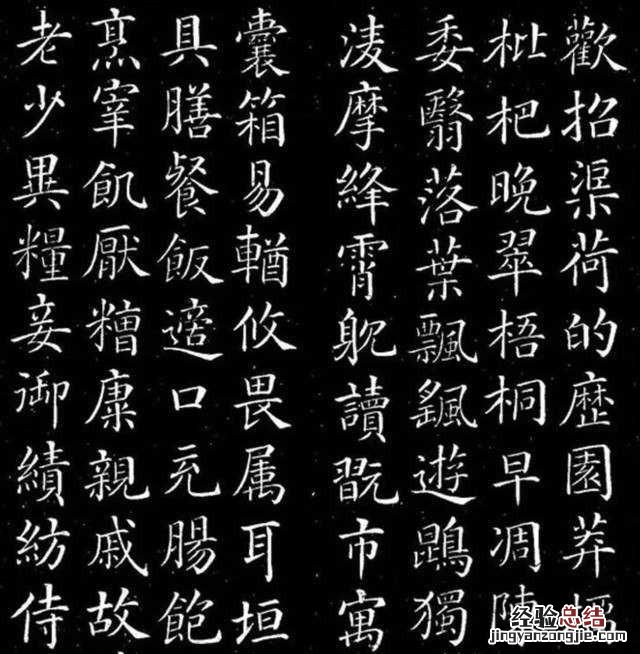 歡招渠荷的歷園莽
枇杷晚翠梧桐早凋陳
委翳落葉飄颻遊鵾獨
淩摩絳霄躭讀翫市寓
囊箱易輶攸畏属耳垣
具膳飡飯適口充腸飽
烹宰飢厭糟康親戚故
老少異糧妾御績紡侍
经验总结
jingyanzongjie.com